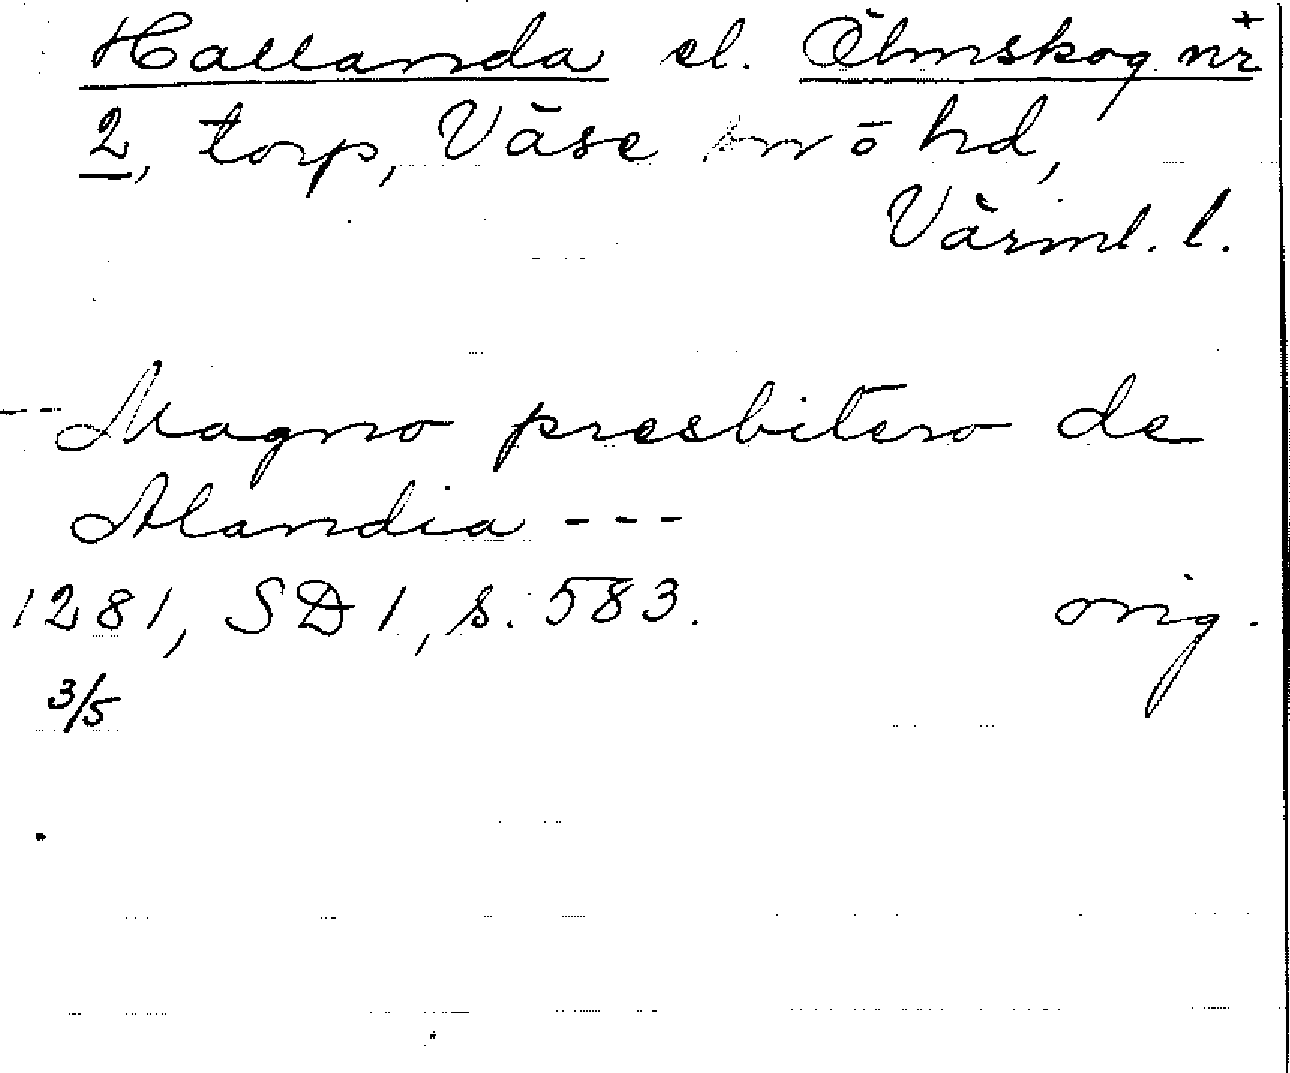 Hallanda el. Ölmskog nr +
2, torp, Väse sn o hd,
Värml. l.
-- Magno presbitero de
Alandia ---
1281, SD 1, s. 583. orig.
3/5